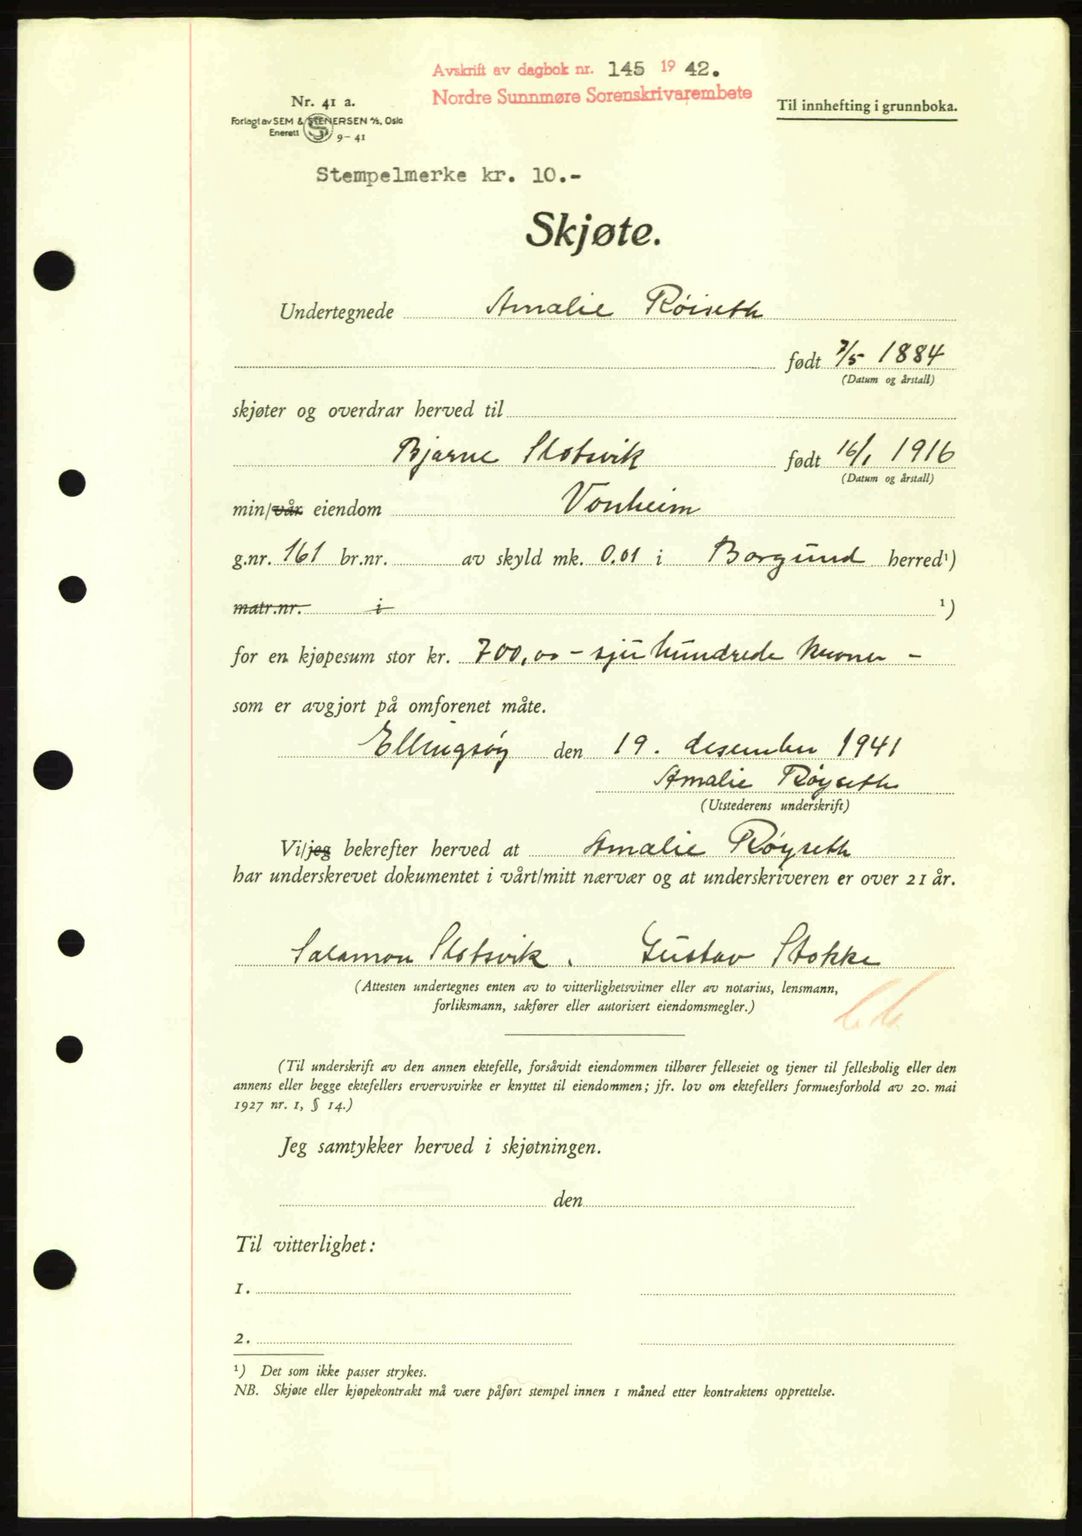 Avskrift av dagbok nr. 145 1942.
Nordre Sunnmøre Sorenskrivarembete
Nr. 41 a.
Til innhefting i grunnboka.
Forlagt av SEM & STENERSEN A/S, Oslo
Enerett 9-41
Stempelmerke kr. 10.-
Skjøte.
Undertegnede Amalie Røiseth
født 7/5 1884
(Datum og årstall)
skjøter og overdrar herved til
Bjarne Slotsvik født 16/1 1916
(Datum og årstall)
min/vår eiendom Vonheim
g.nr. 161 br.nr. av skyld mk. 0.01 i Borgund herred¹)
matr.nr. i ¹)
for en kjøpesum stor kr. 700,00 - sju hundrede kroner -
som er avgjort på omforenet måte.
Ellingsøy den 19. desember 1941
Amalie Røyseth
(Utstederens underskrift)
Vi/jeg bekrefter herved at Amalie Røyseth
har underskrevet dokumentet i vårt/mitt nærvær og at underskriveren er over 21 år.
Salamon Slotsvik. Gustav Stokke
(Attesten undertegnes enten av to vitterlighetsvitner eller av notarius, lensmann,
forliksmann, sakfører eller autorisert eiendomsmegler.)
(Til underskrift av den annen ektefelle, forsåvidt eiendommen tilhører felleseiet og tjener til fellesbolig eller den
annens eller begge ektefellers ervervsvirke er knyttet til eiendommen; jfr. lov om ektefellers formuesforhold av 20. mai
1927 nr. 1, § 14.)
Jeg samtykker herved i skjøtningen.
den
Til vitterlighet:
1.
2.
¹) Det som ikke passer strykes.
NB. Skjøte eller kjøpekontrakt må være påført stempel innen 1 måned etter kontraktens opprettelse.